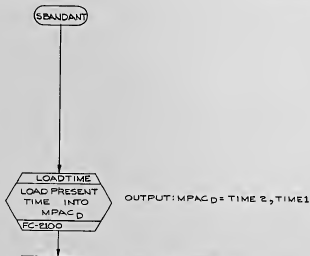 SBANDANT
LOADTIME
LOAD PRESENT
TIME INTO
MPAC D
OUTPUT: MPAC D = TIME 2, TIME1
FC-2100